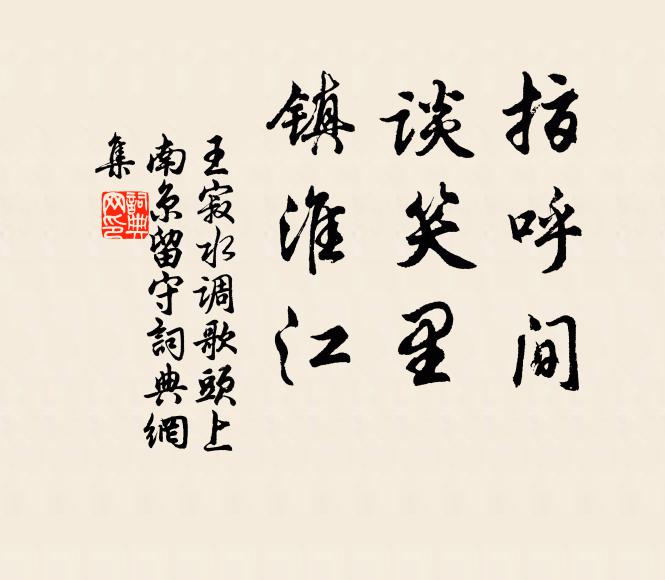 指呼间
谈笑里
镇淮江
王寂水调歌头上
南京留守詞典網
集
詞典
网印